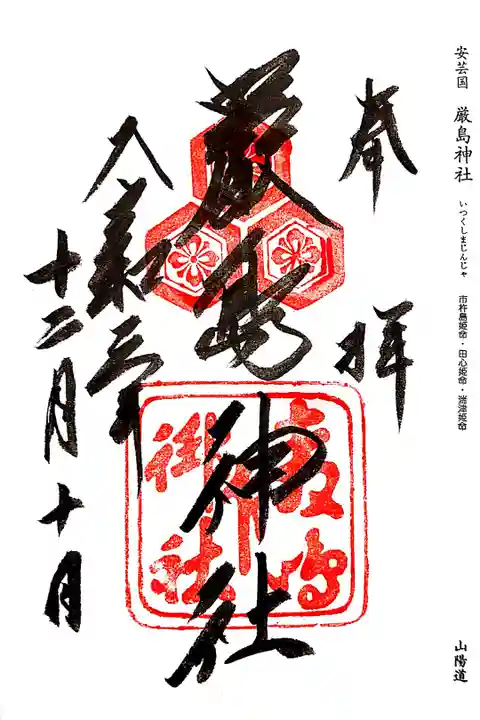 安芸国 厳島神社 いつくしまじんじゃ 市杵島姫命・田心姫命・湍津姫命
山陽道
奉拝
厳島神社
十二月十日